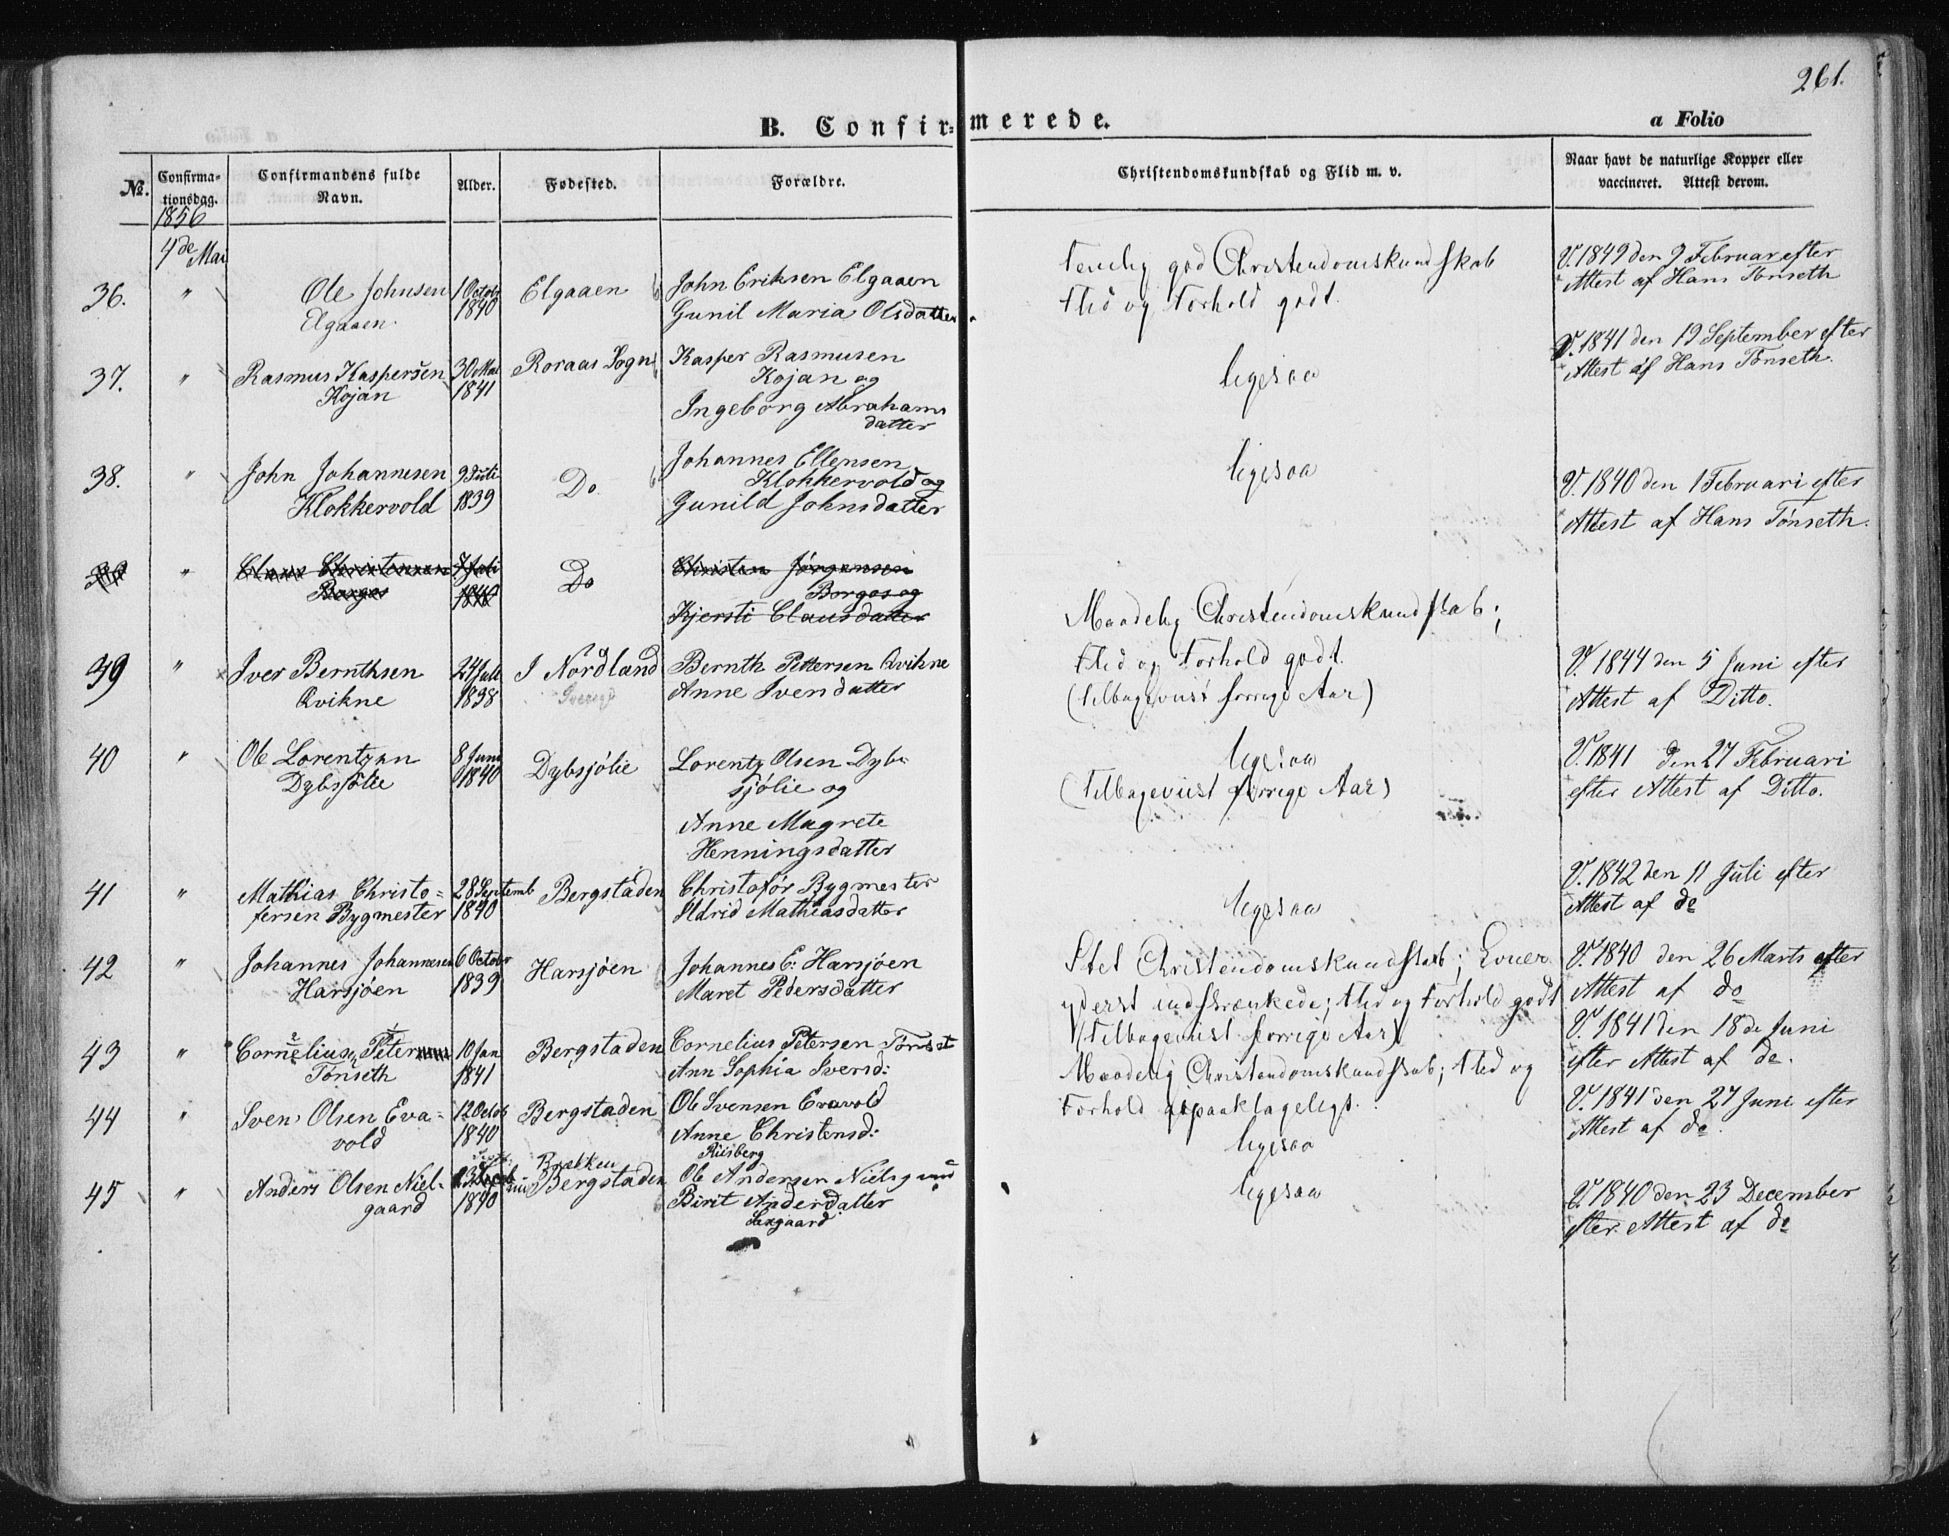 261.
B. Confir=merede.
a Folio
No.
Confirma-
tionsdag.
Confirmandens fulde
Navn.
Alder.
Fødested.
Forældre.
Christendomskundskab og Flid m. v.
Naar havt de naturlige Kopper eller
vaccineret. Attest derom.
1856
4de Mai
36. " Ole Johnsen
Elgaaen.
1 Octobr
1840
Elgaaen
John Eriksen Elgaaen
Gunil Maria Olsdatter
Temelig god Christendomskundskab
Flid og Forhold godt.
V. 1849 den 9 Februar efter
Attest af Hans Tönseth
37. " Rasmus Kaspersen
Kojan
30 Mai
1841
Roraas Sogn
Kasper Rasmusen
Kojan og
Ingeborg Abrahams
datter
ligesaa
V. 1841 den 19 September efter
Attest af Hans Tönseth.
38. " John Johannesen
Klokkervold
9 Juli
1839
Do
Johannes Ellensen
Klokkervold og
Gunild Johnsdatter
ligesaa
V. 1840 den 1 Februari efter
Attest af Hans Tönseth.
39 " Claus Christensen
Borgos
7 Juli
1840
Do
Christen Jörgensen
Borgos og
Kjersti Clausdatter
39 " Iver Bernthsen
Qvikne
24 Juli
1838
I Nordland
Bernth Pettersen Qvikne
Anne Iversdatter
Maadelig Christendomskundskab;
Flid og Forhold godt.
(Tilbageviist forrige Aar)
V. 1844 den 5 Juni efter
Attest af Ditto.
40 " Ole Lorentzen
Dybsjölie
8 Juni
1840
Dybsjölie
Lorentz Olsen Dyb-
sjölie og
Anne Magrete
Henningsdatter
ligesaa
(Tilbageviist forrige Aar)
V. 1841 den 27 Februari
efter Attest af Ditto.
41 " Mathias Christo=
fersen Bygmester
28 Septemb
1840
Bergstaden
Christoför Bygmester
Sldrid Mathiasdatter
ligesaa
V. 1842 den 11 Juli efter
Attest af do
42 " Johannes Johannesen
Harsjöen
6 Octobr
1839
Harsjöen
Johannes E: Harsjöen
Maret Pedersdatter
Slet Christendomskundskab; Evner
yderst indskrænkede; Flid og Forhold godt
(Tilbageviist forrige Aar)
V. 1840 den 26 Marts efter
Attest af do
43 " Cornelius Peter
Tönseth
10 Jan
1841
Bergstaden
Cornelius Petersen Tönset
Ann Sophia Iversd:
Maadelig Christendomskundskab; Flid og
Forhold upaaklageligt.
V. 1841 den 18de Juni
efter Attest af do.
44 " Sven Olsen Eva-
vold
12 Octob
1840
Bergstaden
Ole Svensen Evavold
Anne Christensd:
Riisberg
ligesaa
V. 1841 den 27 Juni efter
Attest af do
45 " Anders Olsen Niel-
gaard
1840
Brækken
Bergstaden
Ole Andersen Nielsgaard
Birit Andersdatter
Saxgaard
ligesaa
V. 1840 den 23 December
efter Attest af do